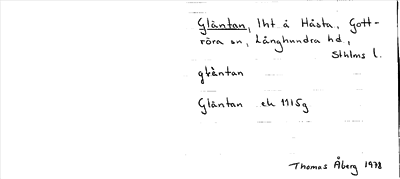 Gläntan, lht å Håsta, Gott-
röra sn, Långhundra hd,
Sthlms l.
gläntan
Gläntan ek 11I5g
Thomas Åberg 1978